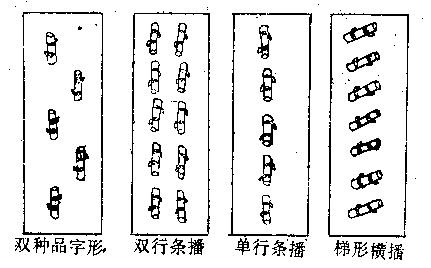 双种品字形
双行条播
单行条播
梯形横播